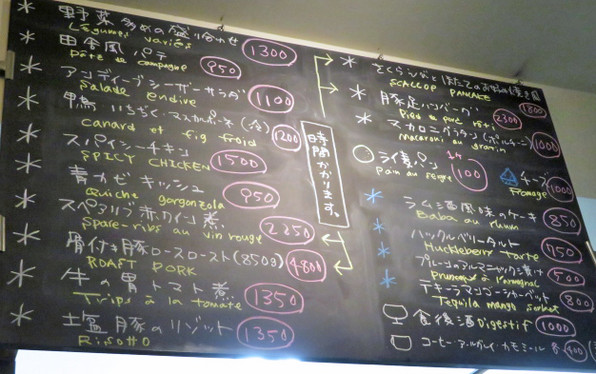 野菜多めの盛り合わせ
Légumes variés 1300
田舎風パテ
Pâté de campagne 950
アンディーブシーザーサラダ
Salade endive 1100
鴨、いちじく・マスカルポーネ(冷)
canard et fig froid 1200
スパイシーチキン
SPICY CHICKEN 1500
青カビキッシュ
Quiche gorgonzola 950
スペアリブ赤ワイン煮
Spare-ribs au vin rouge 2250
骨付き豚ロースロースト(850g)
ROAST PORK 4800
牛の胃トマト煮
Trips à la tomate 1350
土塩豚のリゾット
Risotto 1350
時間かかります。
SCALLOP PANCAKE 1800
豚足ハンバーグ
2300
マカロニグラタン(ポルチーニ)
macaroni au gratin 1000
ライ麦パン
pain au seigle 100
チーズ
Fromage 1000
ラム酒風味のケーキ
Baba au rhum 850
ハックルベリータルト
Huckleberry tarte 750
プルーンのアルマニャック漬け
Pruneaux à l'armagnac 500
テキーラマンゴーシャーベット
Tequila mango sorbet 800
食後酒 Digestif 1000
コーヒー・アールグレイ・カモミール 各400